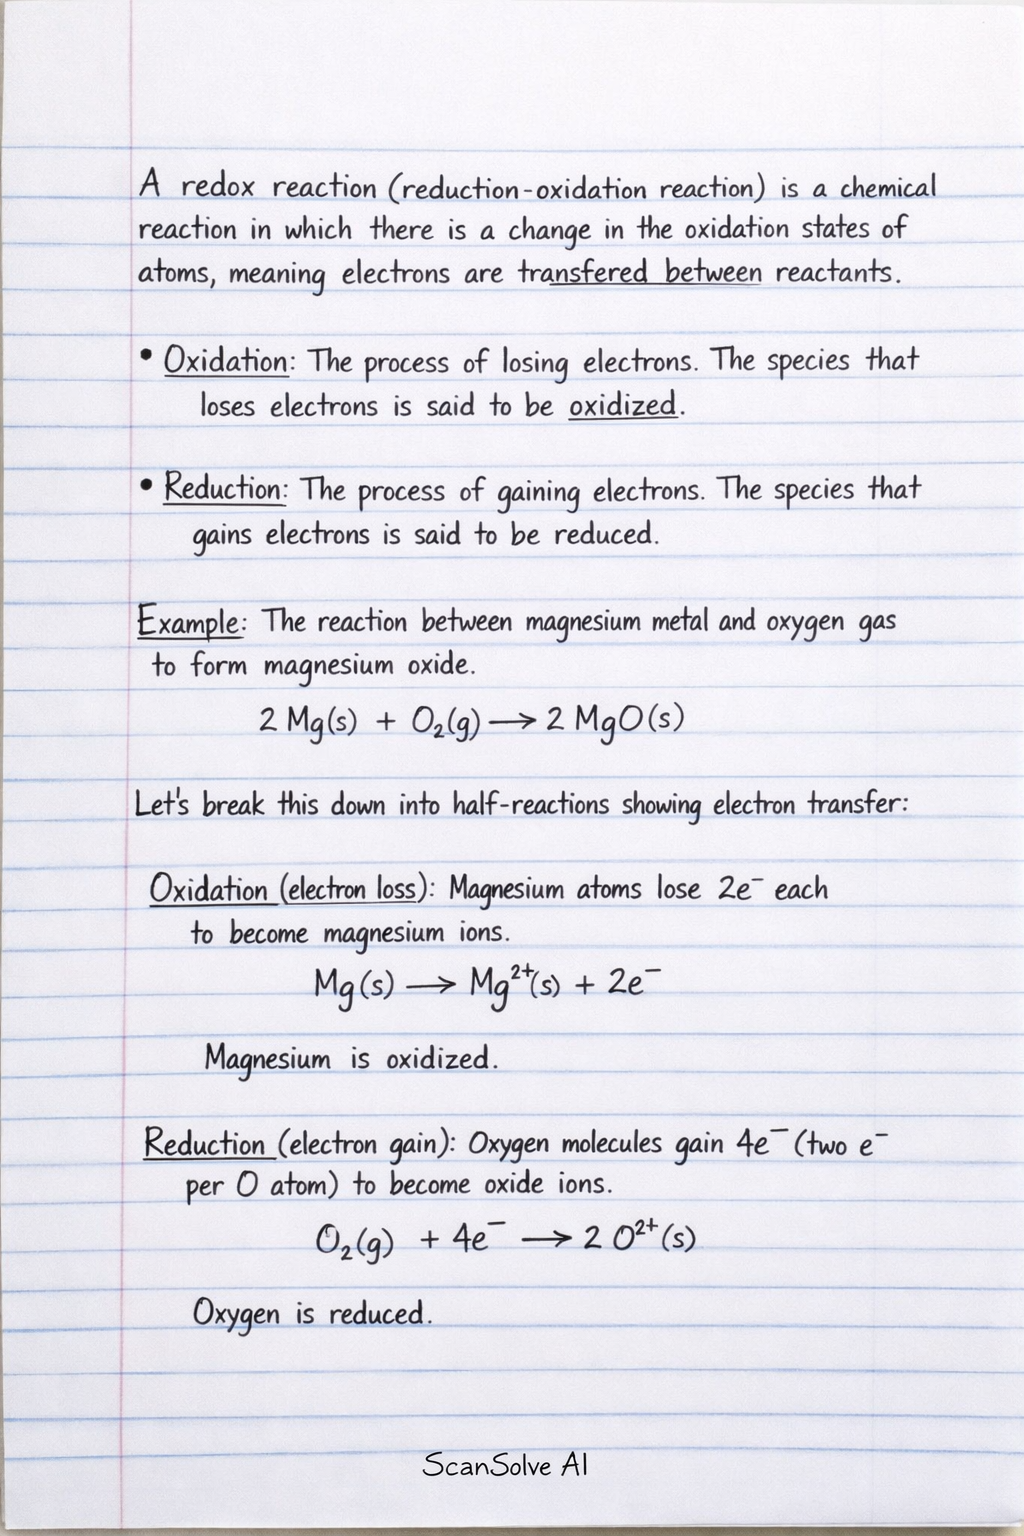 A redox reaction (reduction-oxidation reaction) is a chemical
reaction in which there is a change in the oxidation states of
atoms, meaning electrons are transfered between reactants.
• Oxidation: The process of losing electrons. The species that
loses electrons is said to be oxidized.
• Reduction: The process of gaining electrons. The species that
gains electrons is said to be reduced.
Example: The reaction between magnesium metal and oxygen gas
to form magnesium oxide.
2 Mg(s) + O₂(g) → 2 MgO(s)
Let's break this down into half-reactions showing electron transfer:
Oxidation (electron loss): Magnesium atoms lose 2e⁻ each
to become magnesium ions.
Mg(s) → Mg²⁺(s) + 2e⁻
Magnesium is oxidized.
Reduction (electron gain): Oxygen molecules gain 4e⁻ (two e⁻
per O atom) to become oxide ions.
O₂(g) + 4e⁻ → 2 O²⁺(s)
Oxygen is reduced.
ScanSolve AI